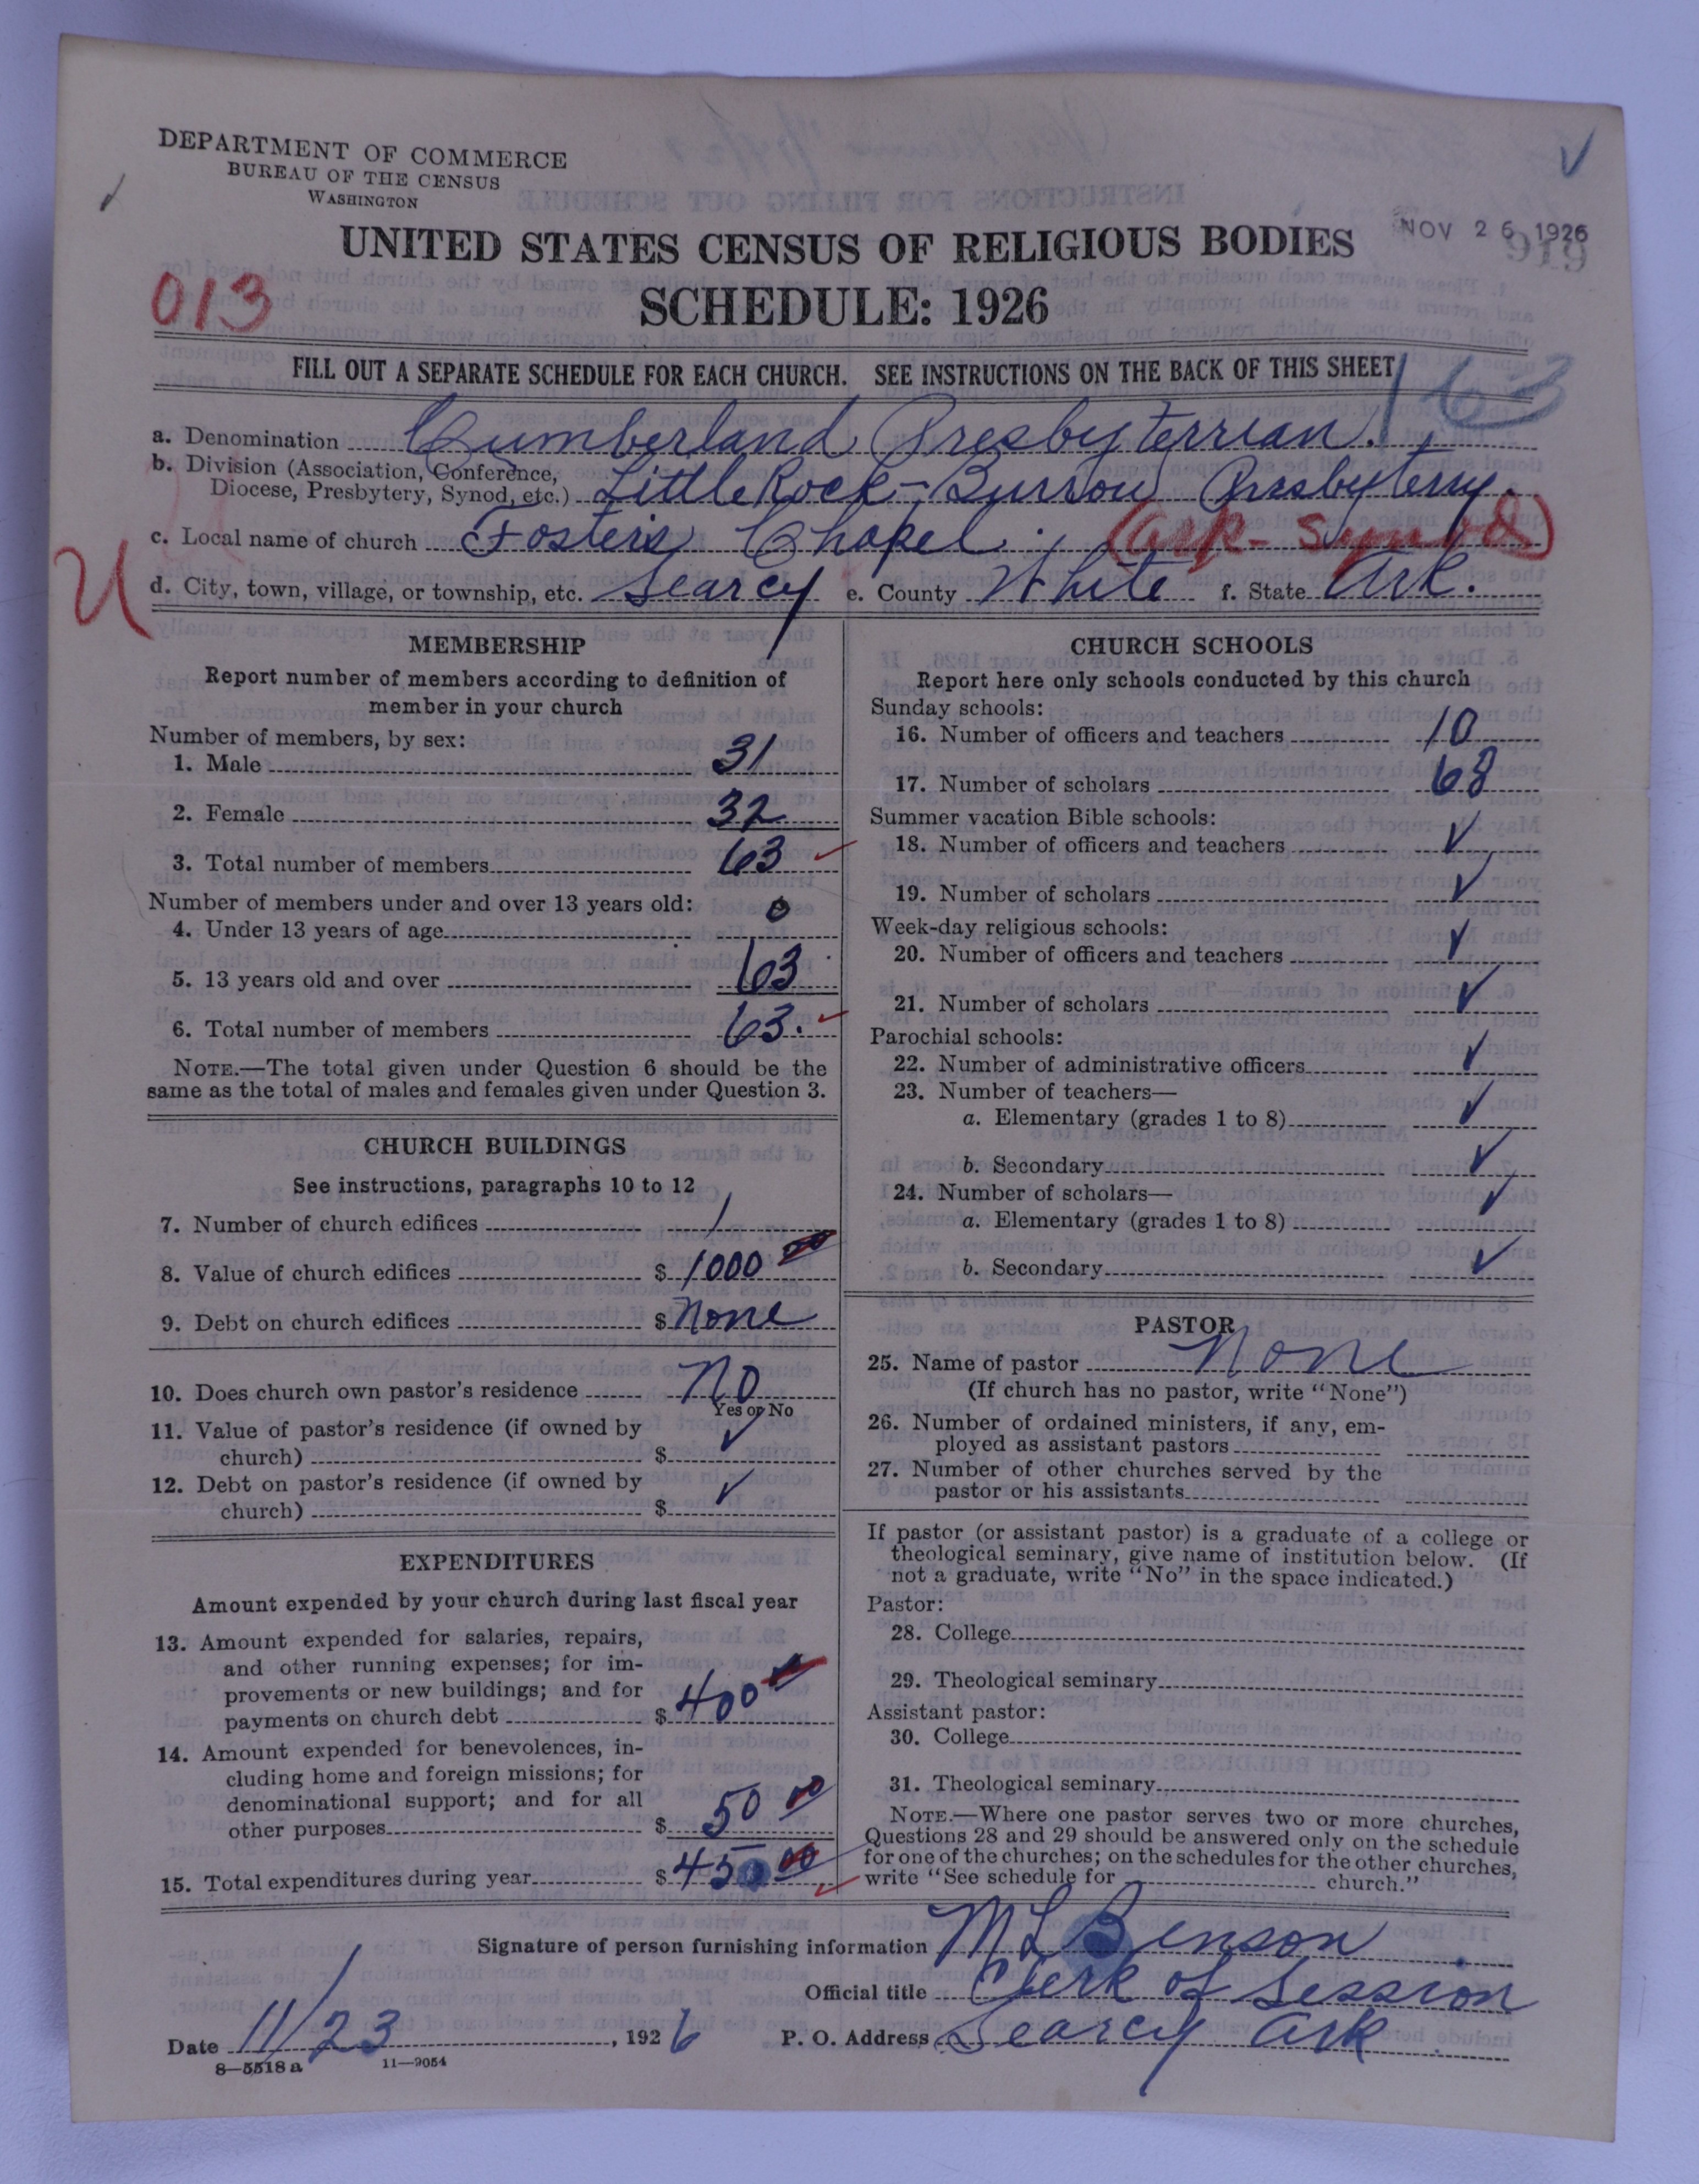 DEPARTMENT OF COMMERCE
BUREAU OF THE CENSUS
WASHINGTON
UNITED STATES CENSUS OF RELIGIOUS BODIES
NOV 26 1926
919
013
SCHEDULE: 1926
FILL OUT A SEPARATE SCHEDULE FOR EACH CHURCH. SEE INSTRUCTIONS ON THE BACK OF THIS SHEET
163
a. Denomination Cumberland Presbyterrian.
b. Division (Association, Conference,
Diocese, Presbytery, Synod, etc.) Little Rock-Burrow Presbytery.
c. Local name of church Foster's Chapel. (Ark- Synod)
U
d. City, town, village, or township, etc. Searcy e. County White f. State Ark.
MEMBERSHIP
Report number of members according to definition of
member in your church
Number of members, by sex:
1. Male 31
2. Female 32
3. Total number of members 63
Number of members under and over 13 years old:
4. Under 13 years of age 0
5. 13 years old and over 63
6. Total number of members 63.
NOTE.—The total given under Question 6 should be the
same as the total of males and females given under Question 3.
CHURCH BUILDINGS
See instructions, paragraphs 10 to 12
7. Number of church edifices 1
8. Value of church edifices $ 1000 00
9. Debt on church edifices $ None
10. Does church own pastor's residence No
Yes or No
11. Value of pastor's residence (if owned by
church) $ ✓
12. Debt on pastor's residence (if owned by
church) $ ✓
EXPENDITURES
Amount expended by your church during last fiscal year
13. Amount expended for salaries, repairs,
and other running expenses; for im-
provements or new buildings; and for
payments on church debt $ 400 00
14. Amount expended for benevolences, in-
cluding home and foreign missions; for
denominational support; and for all
other purposes $ 50 00
15. Total expenditures during year $ 450 00
CHURCH SCHOOLS
Report here only schools conducted by this church
Sunday schools:
16. Number of officers and teachers 10
17. Number of scholars 68
Summer vacation Bible schools:
18. Number of officers and teachers ✓
19. Number of scholars ✓
Week-day religious schools:
20. Number of officers and teachers ✓
21. Number of scholars ✓
Parochial schools:
22. Number of administrative officers ✓
23. Number of teachers—
a. Elementary (grades 1 to 8) ✓
b. Secondary ✓
24. Number of scholars—
a. Elementary (grades 1 to 8) ✓
b. Secondary ✓
PASTOR
25. Name of pastor None
(If church has no pastor, write "None")
26. Number of ordained ministers, if any, em-
ployed as assistant pastors
27. Number of other churches served by the
pastor or his assistants
If pastor (or assistant pastor) is a graduate of a college or
theological seminary, give name of institution below. (If
not a graduate, write "No" in the space indicated.)
Pastor:
28. College
29. Theological seminary
Assistant pastor:
30. College
31. Theological seminary
NOTE.—Where one pastor serves two or more churches,
Questions 28 and 29 should be answered only on the schedule
for one of the churches; on the schedules for the other churches,
write "See schedule for church."
Signature of person furnishing information M L Benson
Official title Clerk of Session
Date 11/23, 1926 P. O. Address Searcy Ark
8—5518 a 11—9054